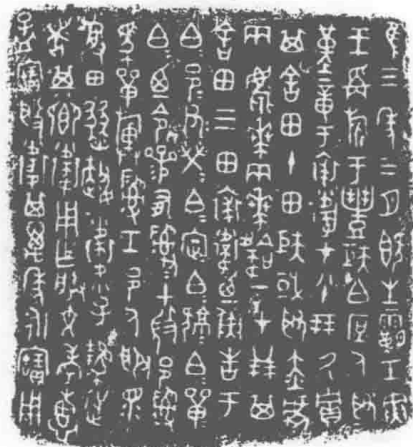 隹三年三月既生霸壬寅
王爯旂于豐矩白庶人取
堇章于裘衛才八十朋氒貯
其舍田十田矩或取赤虎
兩麀𠦪兩𠦪韐一才廿朋其
舍田三田裘衛乃彘告于
白邑父榮白定白𤯍白單
白乃令參有司司土微邑司
馬單旟司工邑人服眾
受田燹趞衛小子逆
者其鄉衛用乍朕文考惠
孟寶般衛其萬年永寶用